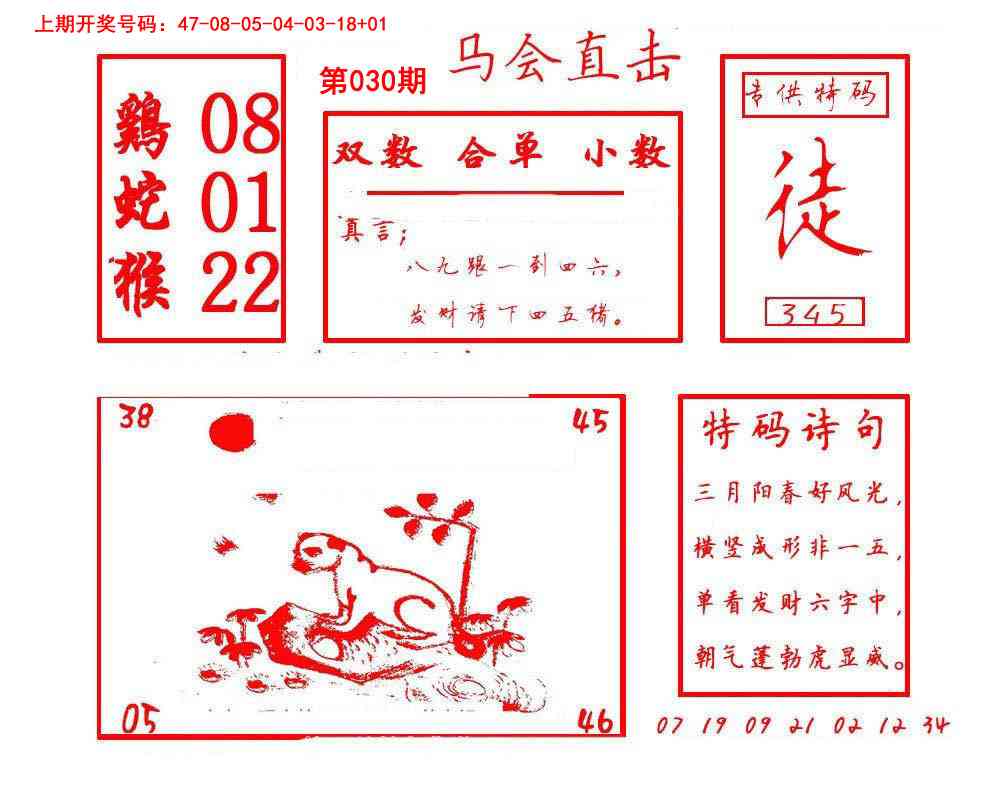 上期开奖号码：47-08-05-04-03-18+01
第030期
马会直击
鷄 08
蛇 01
猴 22
双数 合单 小数
真言；
八九跟一到四六，
发财请下四五猪。
专供特码
徒
345
38
45
05
46
特码诗句
三月阳春好风光，
横竖成形非一五，
单看发财六字中，
朝气蓬勃虎显威。
07 19 09 21 02 12 34